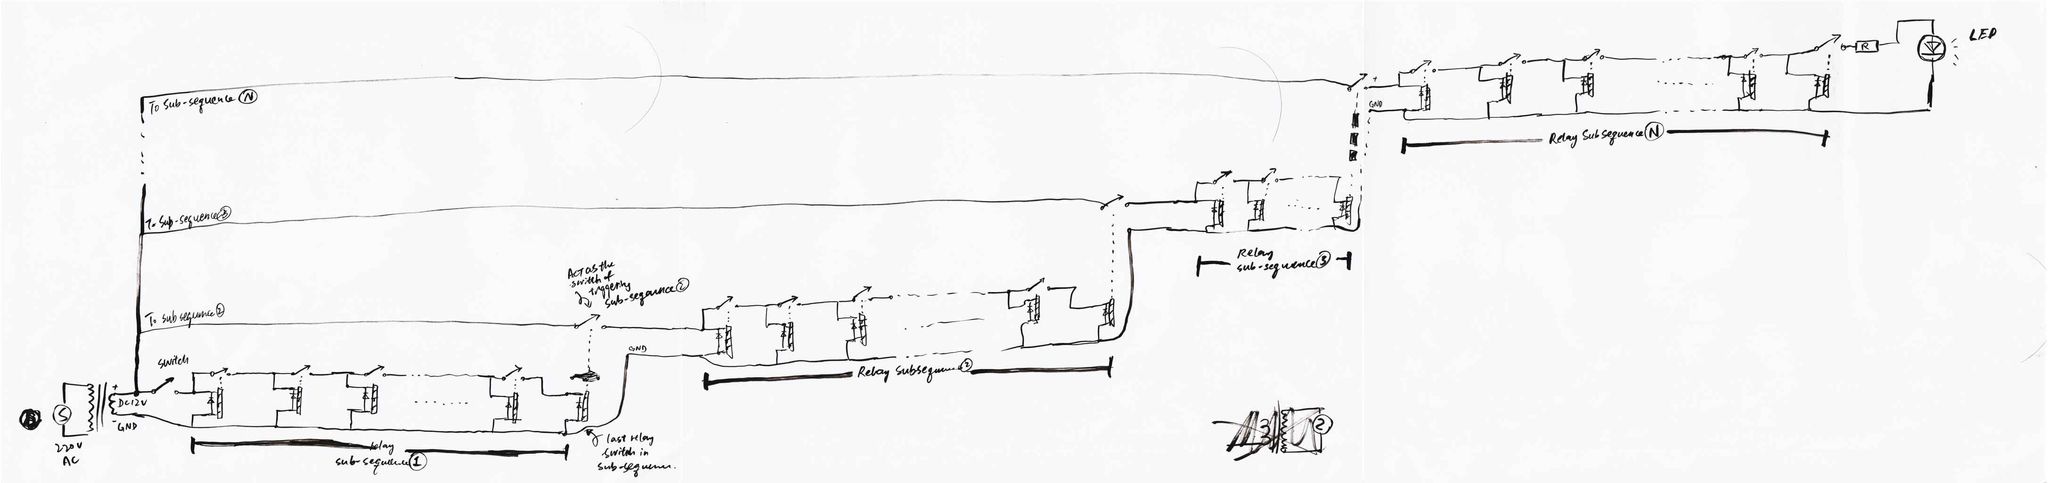 LED
R
+
To Sub-sequence Ⓝ
GND
Relay Subsequence Ⓝ
To Sub-sequence ③
Relay
sub-sequence ③
Act as the
switch of
triggering
sub-sequence ②
To Subsequence ②
GND
Switch
Relay Subsequence ②
+
DC12V
-
GND
B
S
220V
AC
relay
sub-sequence ①
last relay
switch in
sub-sequence.
2